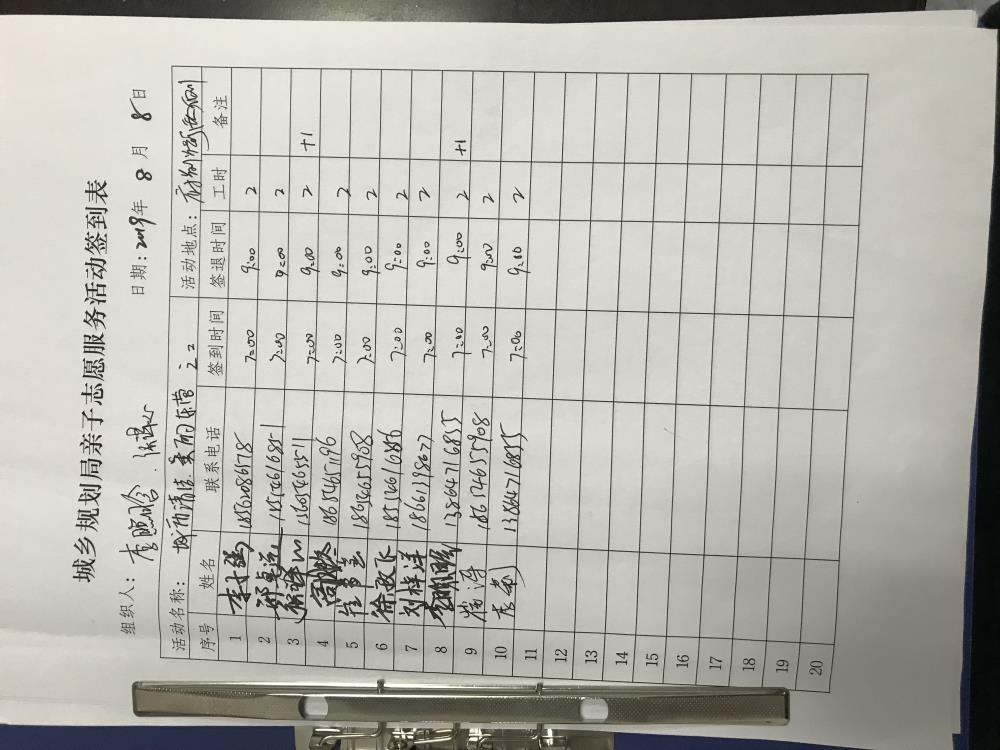 城乡规划局亲子志愿服务活动签到表
组织人: 日期: 2019年 8 月 8 日
活动名称: 城市清洁 美丽东营 活动地点:
序号 姓名 联系电话 签到时间 签退时间 工时 备注
1 18562086578 7:00 9:00 2
2 7:00 9:00 2
3 15605465511 7:00 9:00 2 +1
4 18654651196 7:00 9:00 2
5 18654655908 7:00 9:00 2
6 徐政飞 18554616816 7:00 9:00 2
7 刘梓洋 18661398677 7:00 9:00 2
8 13864716855 7:00 9:00 2 +1
9 杨涛 18654655908 7:00 9:00 2
10 13864716855 7:00 9:00 2
11
12
13
14
15
16
17
18
19
20